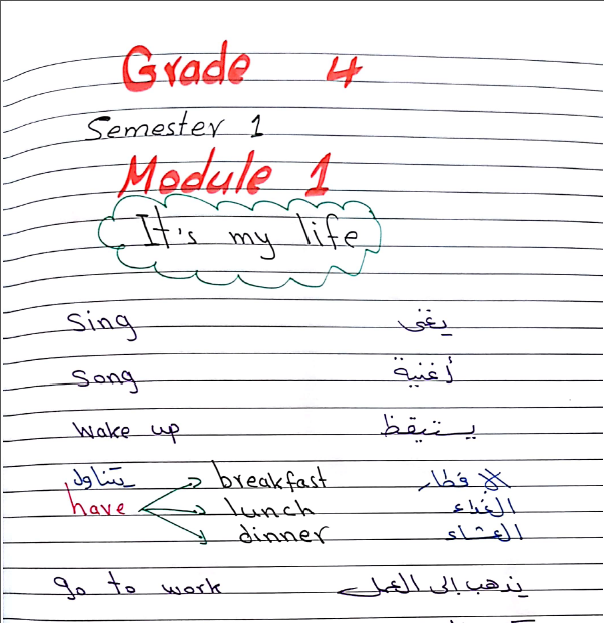 Grade 4
Semester 1
Module 1
It's my life
Sing يغنى
Song أغنية
wake up يستيقظ
يتناول breakfast الافطار
have lunch الغداء
dinner العشاء
go to work يذهب إلى العمل